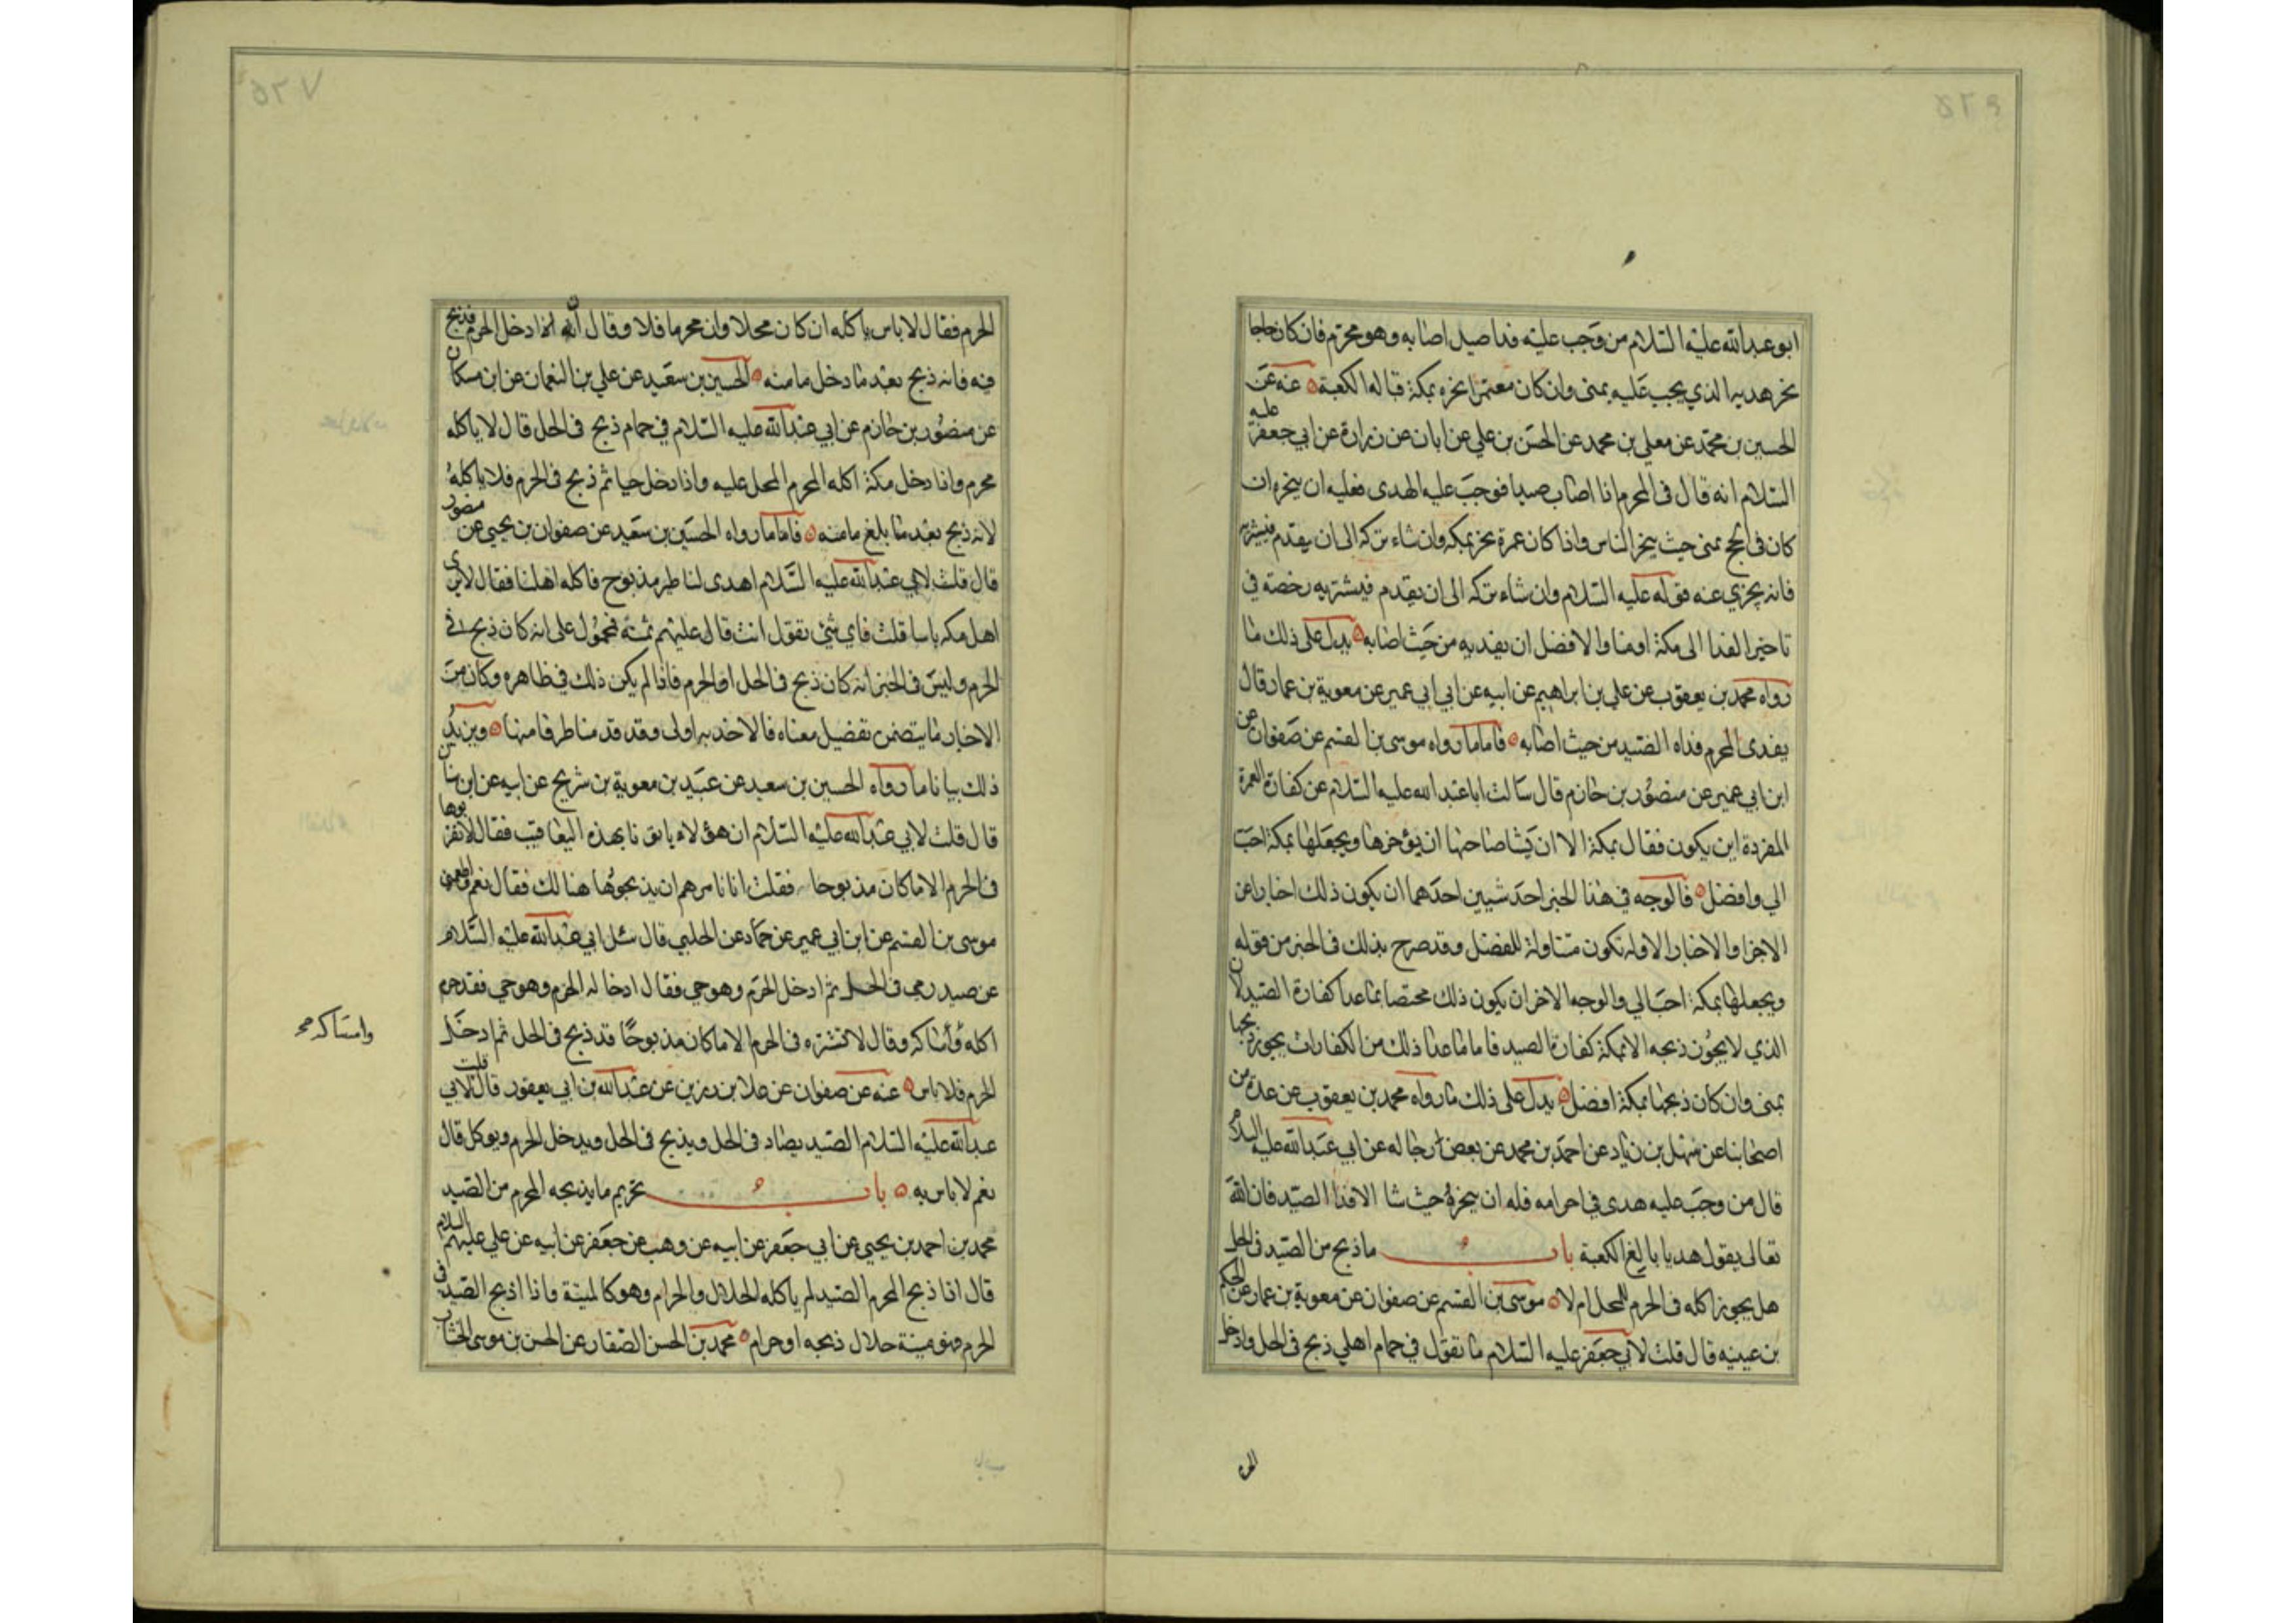 ابو عبدالله عليه السلام من وجب عليه فدا صيد اصابه وهو محرم فان كان حاجا
نحر هديه الذي يجب عليه بمنى وان كان معتمرا نحره بمكة قباله الكعبة عنه عن
الحسين بن محمد عن معلى بن محمد عن الحسن بن علي عن ابان عن زرارة عن ابي جعفر عليه
السلام انه قال في المحرم اذا اصاب صيدا فوجب عليه الهدى فعليه ان ينحره ان
كان في الحج بمنى حيث ينحر الناس واذا كان عمرة نحر بمكه وان شاء تركه الى ان يقدم فيشتريه
فانه يجزي عنه فقوله عليه السلام وان شاء تركه الى ان يقدم فيشتريه رخصة في
تاخير الفدا الى مكة او منا والافضل ان يفديه من حيث اصابه يدل على ذلك ما
رواه محمد بن يعقوب عن علي بن ابراهيم عن ابيه عن ابي ابي عمير عن معوية بن عمار قال
يفدى المحرم فداه الصيد من حيث اصابه فاما ما رواه موسى بن القسم عن صفوان عن
ابن ابي عمير عن منصور بن حازم قال سالت ابا عبد الله عليه السلام عن كفارة العمرة
المفردة اين يكون فقال بمكة الا ان يشا صاحبها ان يؤخرها ويجعلها بمكة احب
الي وافضل فالوجه في هذا الخبر احد شيين احدهما ان يكون ذلك اخبارا عن
الاجزا والاخبار الاوله تكون متناولة للفضل وقد صرح بذلك في الخبر من قوله
ويجعلها بمكة احب الي والوجه الاخر ان يكون ذلك مختصا بما عدا كفارة الصيد لان
الذي لا يجوز ذبحه الا بمكة كفارة الصيد فاما ما عدا ذلك من الكفارات يجوز ذبحها
بمنى وان كان ذبحها بمكة افضل يدل على ذلك ما رواه محمد بن يعقوب عن عدة من
اصحابنا عن سهل بن زياد عن احمد بن محمد عن بعض رجاله عن ابي عبدالله عليه السلام
قال من وجب عليه هدى في احرامه فله ان ينحره حيث شا الا فدا الصيد فان الله
تعالى يقول هديا بالغ الكعبة باب ما ذبح من الصيد في الحل
هل يجوز اكله في الحرم للمحل ام لا موسى بن القسم عن صفوان عن معوية بن عمار عن الحكم
بن عيينه قال قلت لابي جعفر عليه السلام ما تقول في حمام اهلي ذبح في الحل وادخل
الحرم فقال لا باس ياكله ان كان محلا وان محرما فلا وقال ان ادخل الحرم فذبح
فيه فانه ذبح بعد ما دخل مامنه الحسين بن سعيد عن علي بن النعمان عن ابن مسكان
عن منصور بن حازم عن ابي عبدالله عليه السلام في حمام ذبح في الحل قال لا ياكله
محرم واذا دخل مكة اكله المحرم المحل عليه واذا دخل حيا ثم ذبح في الحرم فلا ياكله
لانه ذبح بعد ما بلغ مامنه فاما ما رواه الحسين بن سعيد عن صفوان بن يحيى عن منصور
قال قلت لابي عبدالله عليه السلام اهدى لنا طير مذبوح فاكله اهلنا فقال لا يرى
اهل مكه باسا قلت فاي شئ تقول انت قال عليهم ثمنه فمحمول على انه كان ذبح في
الحرم وليس في الخبر انه كان ذبح في الحل او الحرم فاذا لم يكن ذلك في ظاهره وكان من
الاخبار ما يتضمن تفصيل معناه فالاخذ به اولى وقد قدمنا طرفا منها ويزيد
ذلك بيانا ما رواه الحسين بن سعيد عن عبيد بن معوية بن شريح عن ابيه عن ابن سنان
قال قلت لابي عبدالله عليه السلام ان هؤلاء ياتونا بهذه اليعاقيب فقال لا تقربوها
في الحرم الا ما كان مذبوحا فقلت انا نامرهم ان يذبحوها هنالك فقال نعم واطعمني
موسى بن القسم عن ابن ابي عمير عن حماد عن الحلبي قال سئل ابي عبدالله عليه السلام
عن صيد رمى في الحل ثم ادخل الحرم وهو حي فقال اذا ادخله الحرم وهو حي فقد حرم
اكله وامساكه وقال لا تشتره في الحرم الا ما كان مذبوحا قد ذبح في الحل ثم ادخل
وامساكه صح
الحرم فلا باس عنه عن صفوان عن علا بن رزين عن عبدالله بن ابي يعفور قال قلت لابي
عبدالله عليه السلام الصيد يصاد في الحل ويذبح في الحل ويدخل الحرم ويوكل قال
نعم لا باس به باب تحريم ما يذبحه المحرم من الصيد
محمد بن احمد بن يحيى عن ابي جعفر عن ابيه عن وهب عن جعفر عن ابيه عن علي عليهم السلام
قال اذا ذبح المحرم الصيد لم ياكله الحلال والحرام وهو كالميتة واذا ذبح الصيد في
الحرم فهو ميتة حلال ذبحه او حرام محمد بن الحسن الصفار عن الحسن بن موسى الخشاب